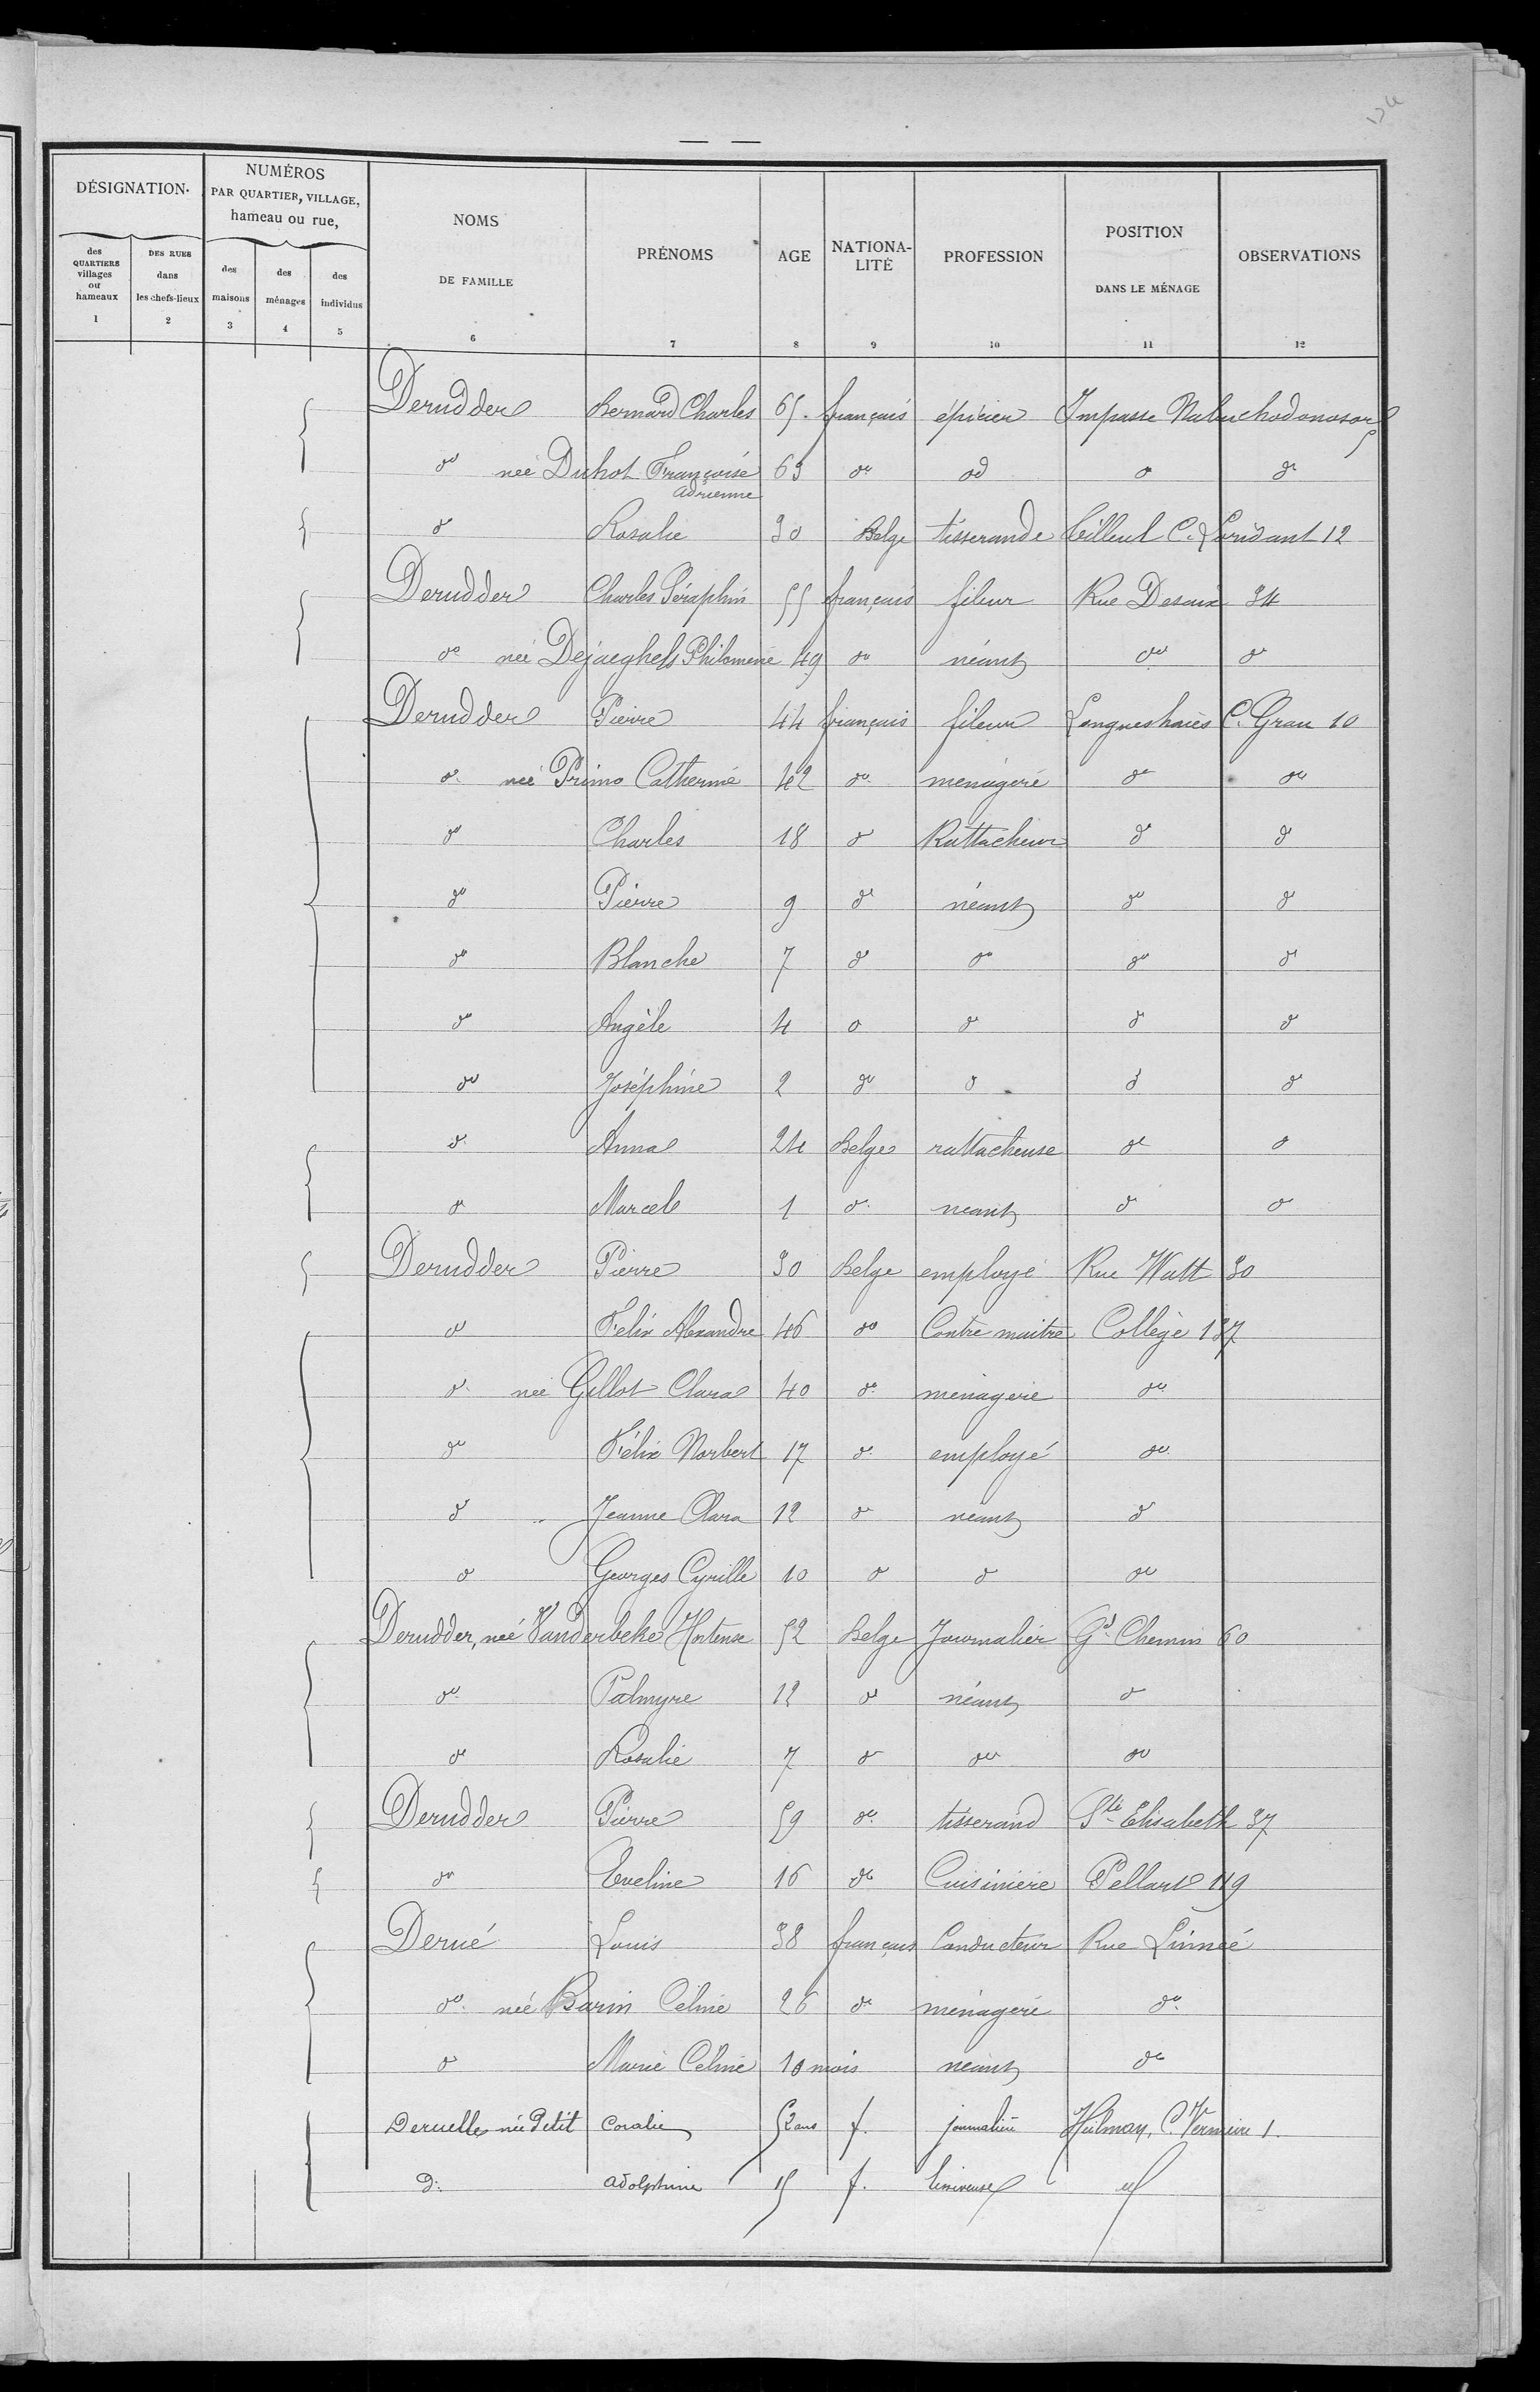 DÉSIGNATION.
NUMÉROS
PAR QUARTIER, VILLAGE,
hameau ou rue,
des QUARTIERS villages ou hameaux
DES RUES dans les chefs-lieux
des maisons
des ménages
des individus
NOMS DE FAMILLE
PRÉNOMS
AGE
NATIONA-LITÉ
PROFESSION
POSITION DANS LE MÉNAGE
OBSERVATIONS
1 2 3 4 5 6 7 8 9 10 11 12
Derudder Bernard Charles 65. français épicier Impasse Nabuchodonosor 5
do née Duhot Françoise 63 do do do do
Adrienne
do Rosalie 30 Belge tisserande Tilleul C. Loridant 12
Derudder Charles Séraphin 55 français fileur Rue Desaix 34
do née Dejaeghels Philomene 49 do néant do do
Derudder Pierre 44 français fileur Longueshaies C. Grau 10
do née Primo Catherine 42 do menagere do do
do Charles 18 do Rattacheur do do
do Pierre 9 do néant do do
do Blanche 7 do do do do
do Angèle 4 do do do do
do Joséphine 2 do do do do
do Anna 24 Belge rattacheuse do do
do Marcel 1 do neant do do
Derudder Pierre 30 Belge employé Rue Watt 30
do Felix Alexandre 46 do Contre maitre Collège 137
do née Gillot Clara 40 do menagere do
do Félix Norbert 17 do employé do
do Jeanne Clara 12 do néant do
do Georges Cyrille 10 do do do
Derudder, née Vanderbeke Hortense 52 Belge Journalier Gd Chemin 60
do Palmyre 12 do néant do
do Rosalie 7 do do do
Derudder Pierre 59 do tisserand Ste Elisabeth 37
do Eveline 16 do Cuisiniere Pellart 119
Derué Louis 38 français Conducteur Rue Linneé
do née Burin Celine 26 do ménagere do
do Marie Celine 10 mois neant do
Deruelles née Petit Coralie 52 ans f. journalière C. Vermeire 1.
D: Adolphine 15 f.